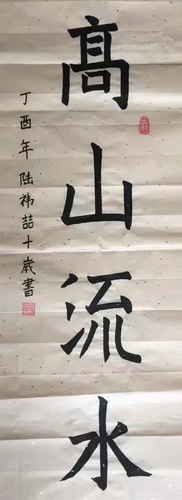 髙山流水
丁酉年陆祎喆十岁書